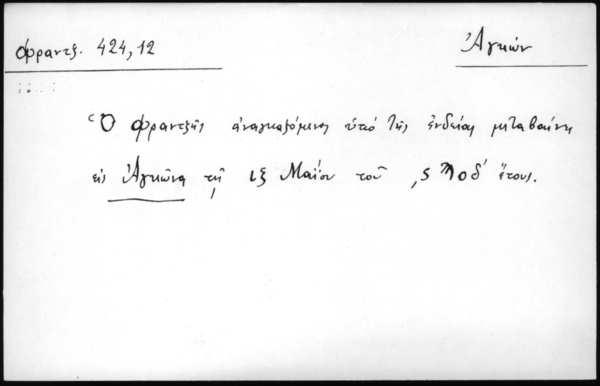 Φραντζ. 424,12
Ἀγκών
Ὁ Φραντζῆς ἀναγκαζόμενος ὑπὸ τῆς ἐνδείας μεταβαίνει
εἰς Ἀγκῶνα τῇ ιξ Μαΐου τοῦ ͵ϛϠοδ´ ἔτους.